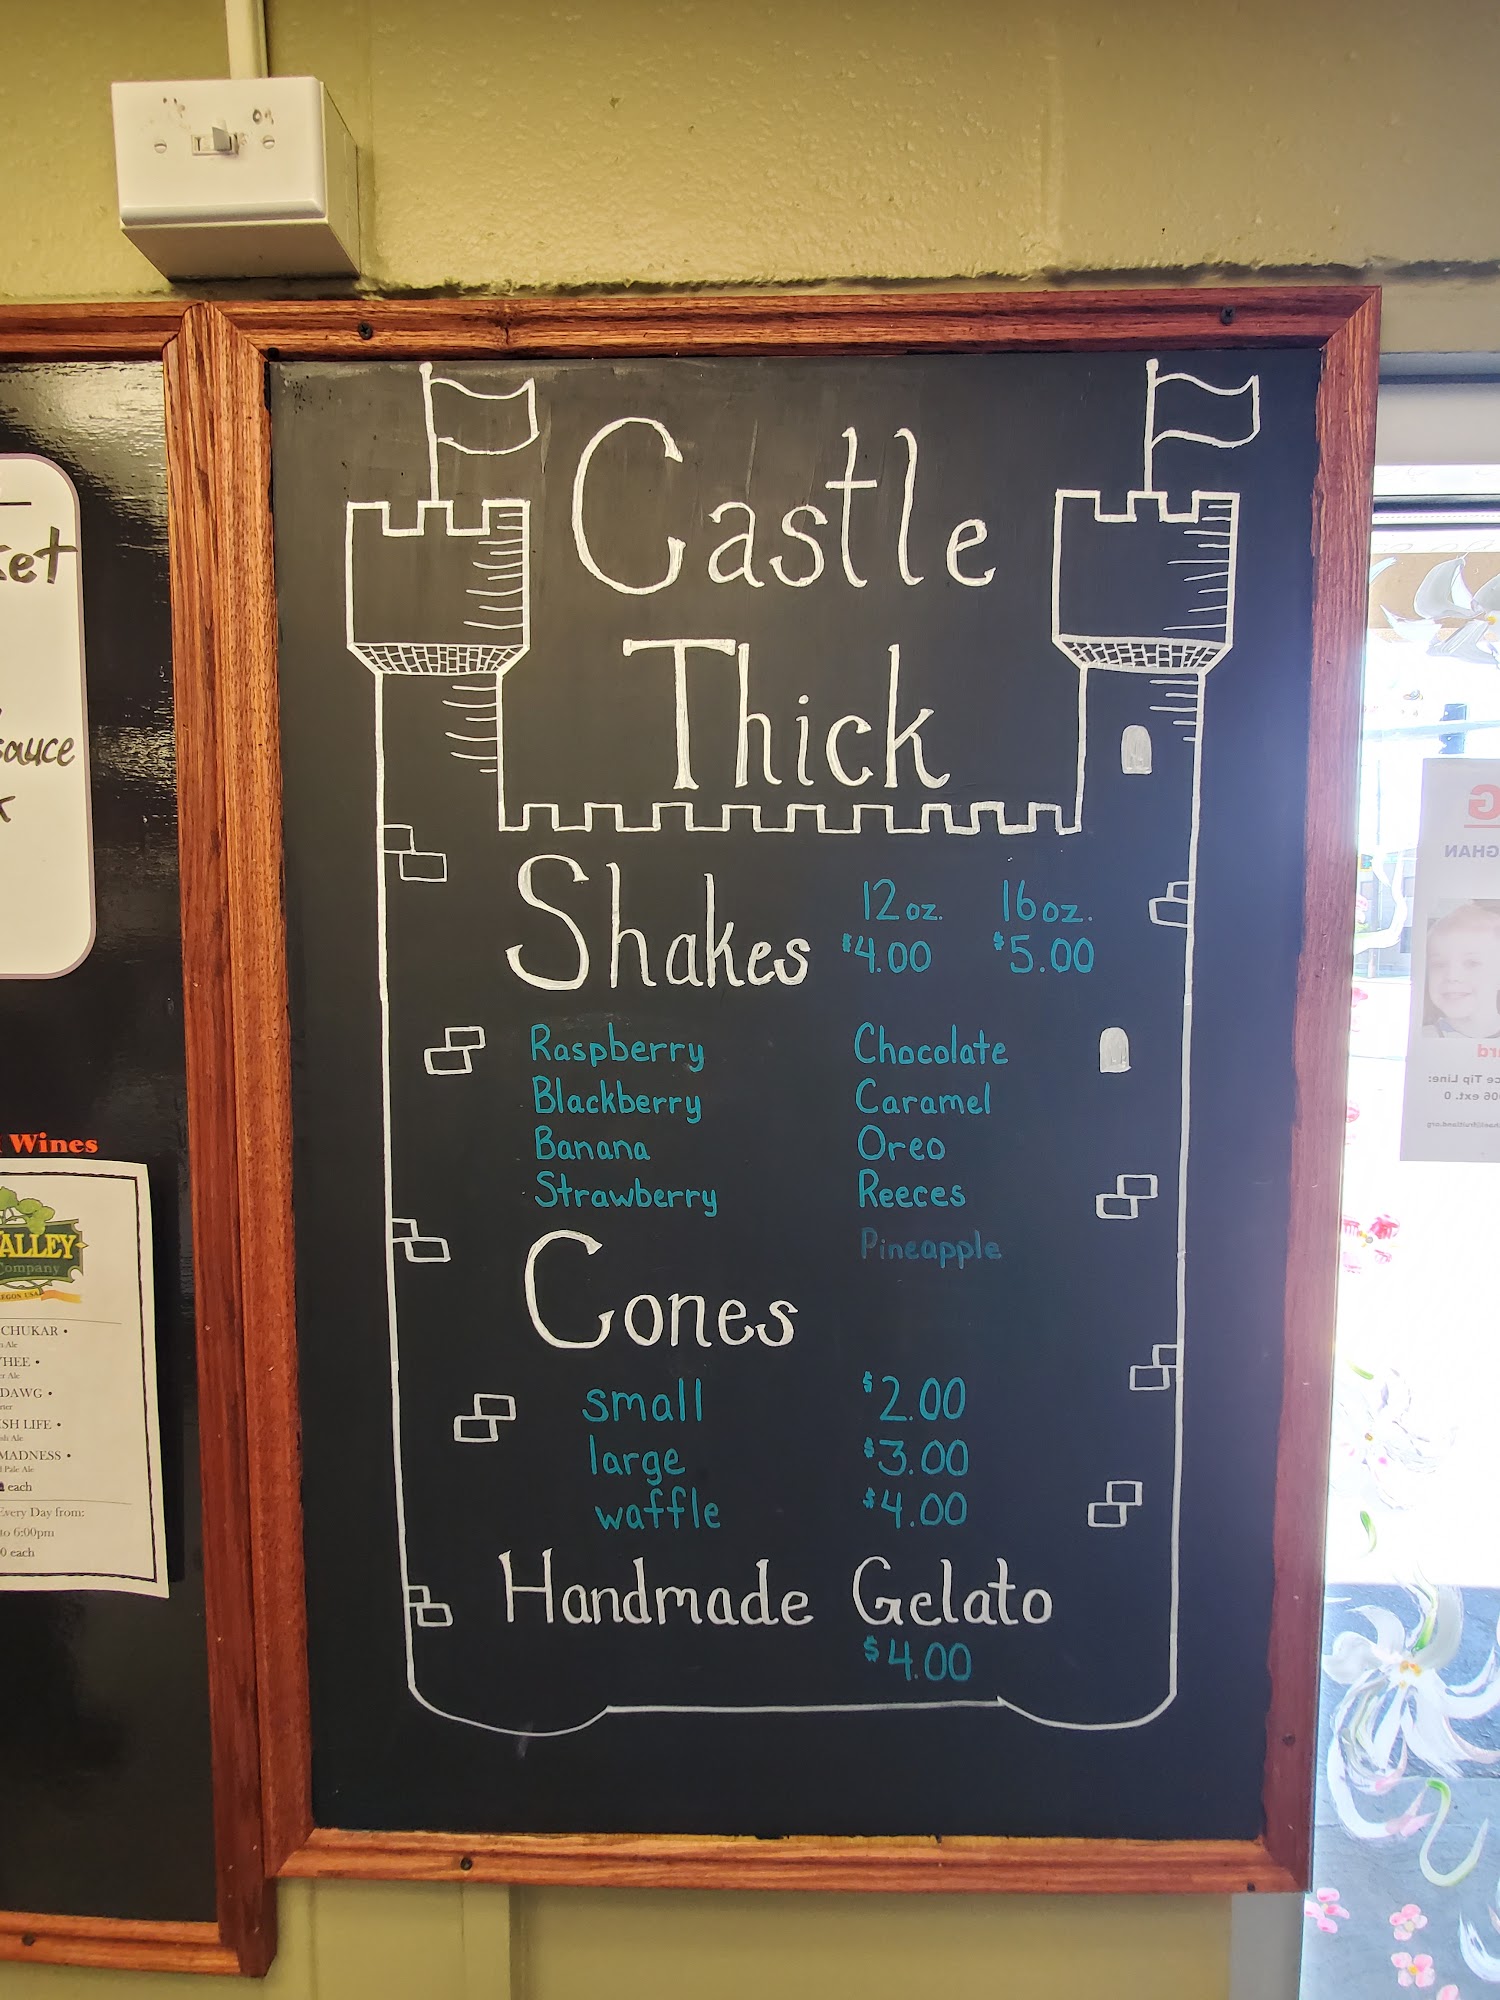 on
Castle
Thick
Shakes
12 oz. 16 oz.
$4.00 $5.00
Raspberry Chocolate
Blackberry Caramel
Banana Oreo
Strawberry Reeces
Pineapple
Cones
small $2.00
large $3.00
waffle $4.00
Handmade Gelato
$4.00
sauce
Wines
ALLEY
Company
CHUKAR •
DAWG •
ISH LIFE •
MADNESS •
each
Every Day from:
to 6:00pm
0 each
GHAN
Tip Line:
06 ext. 0